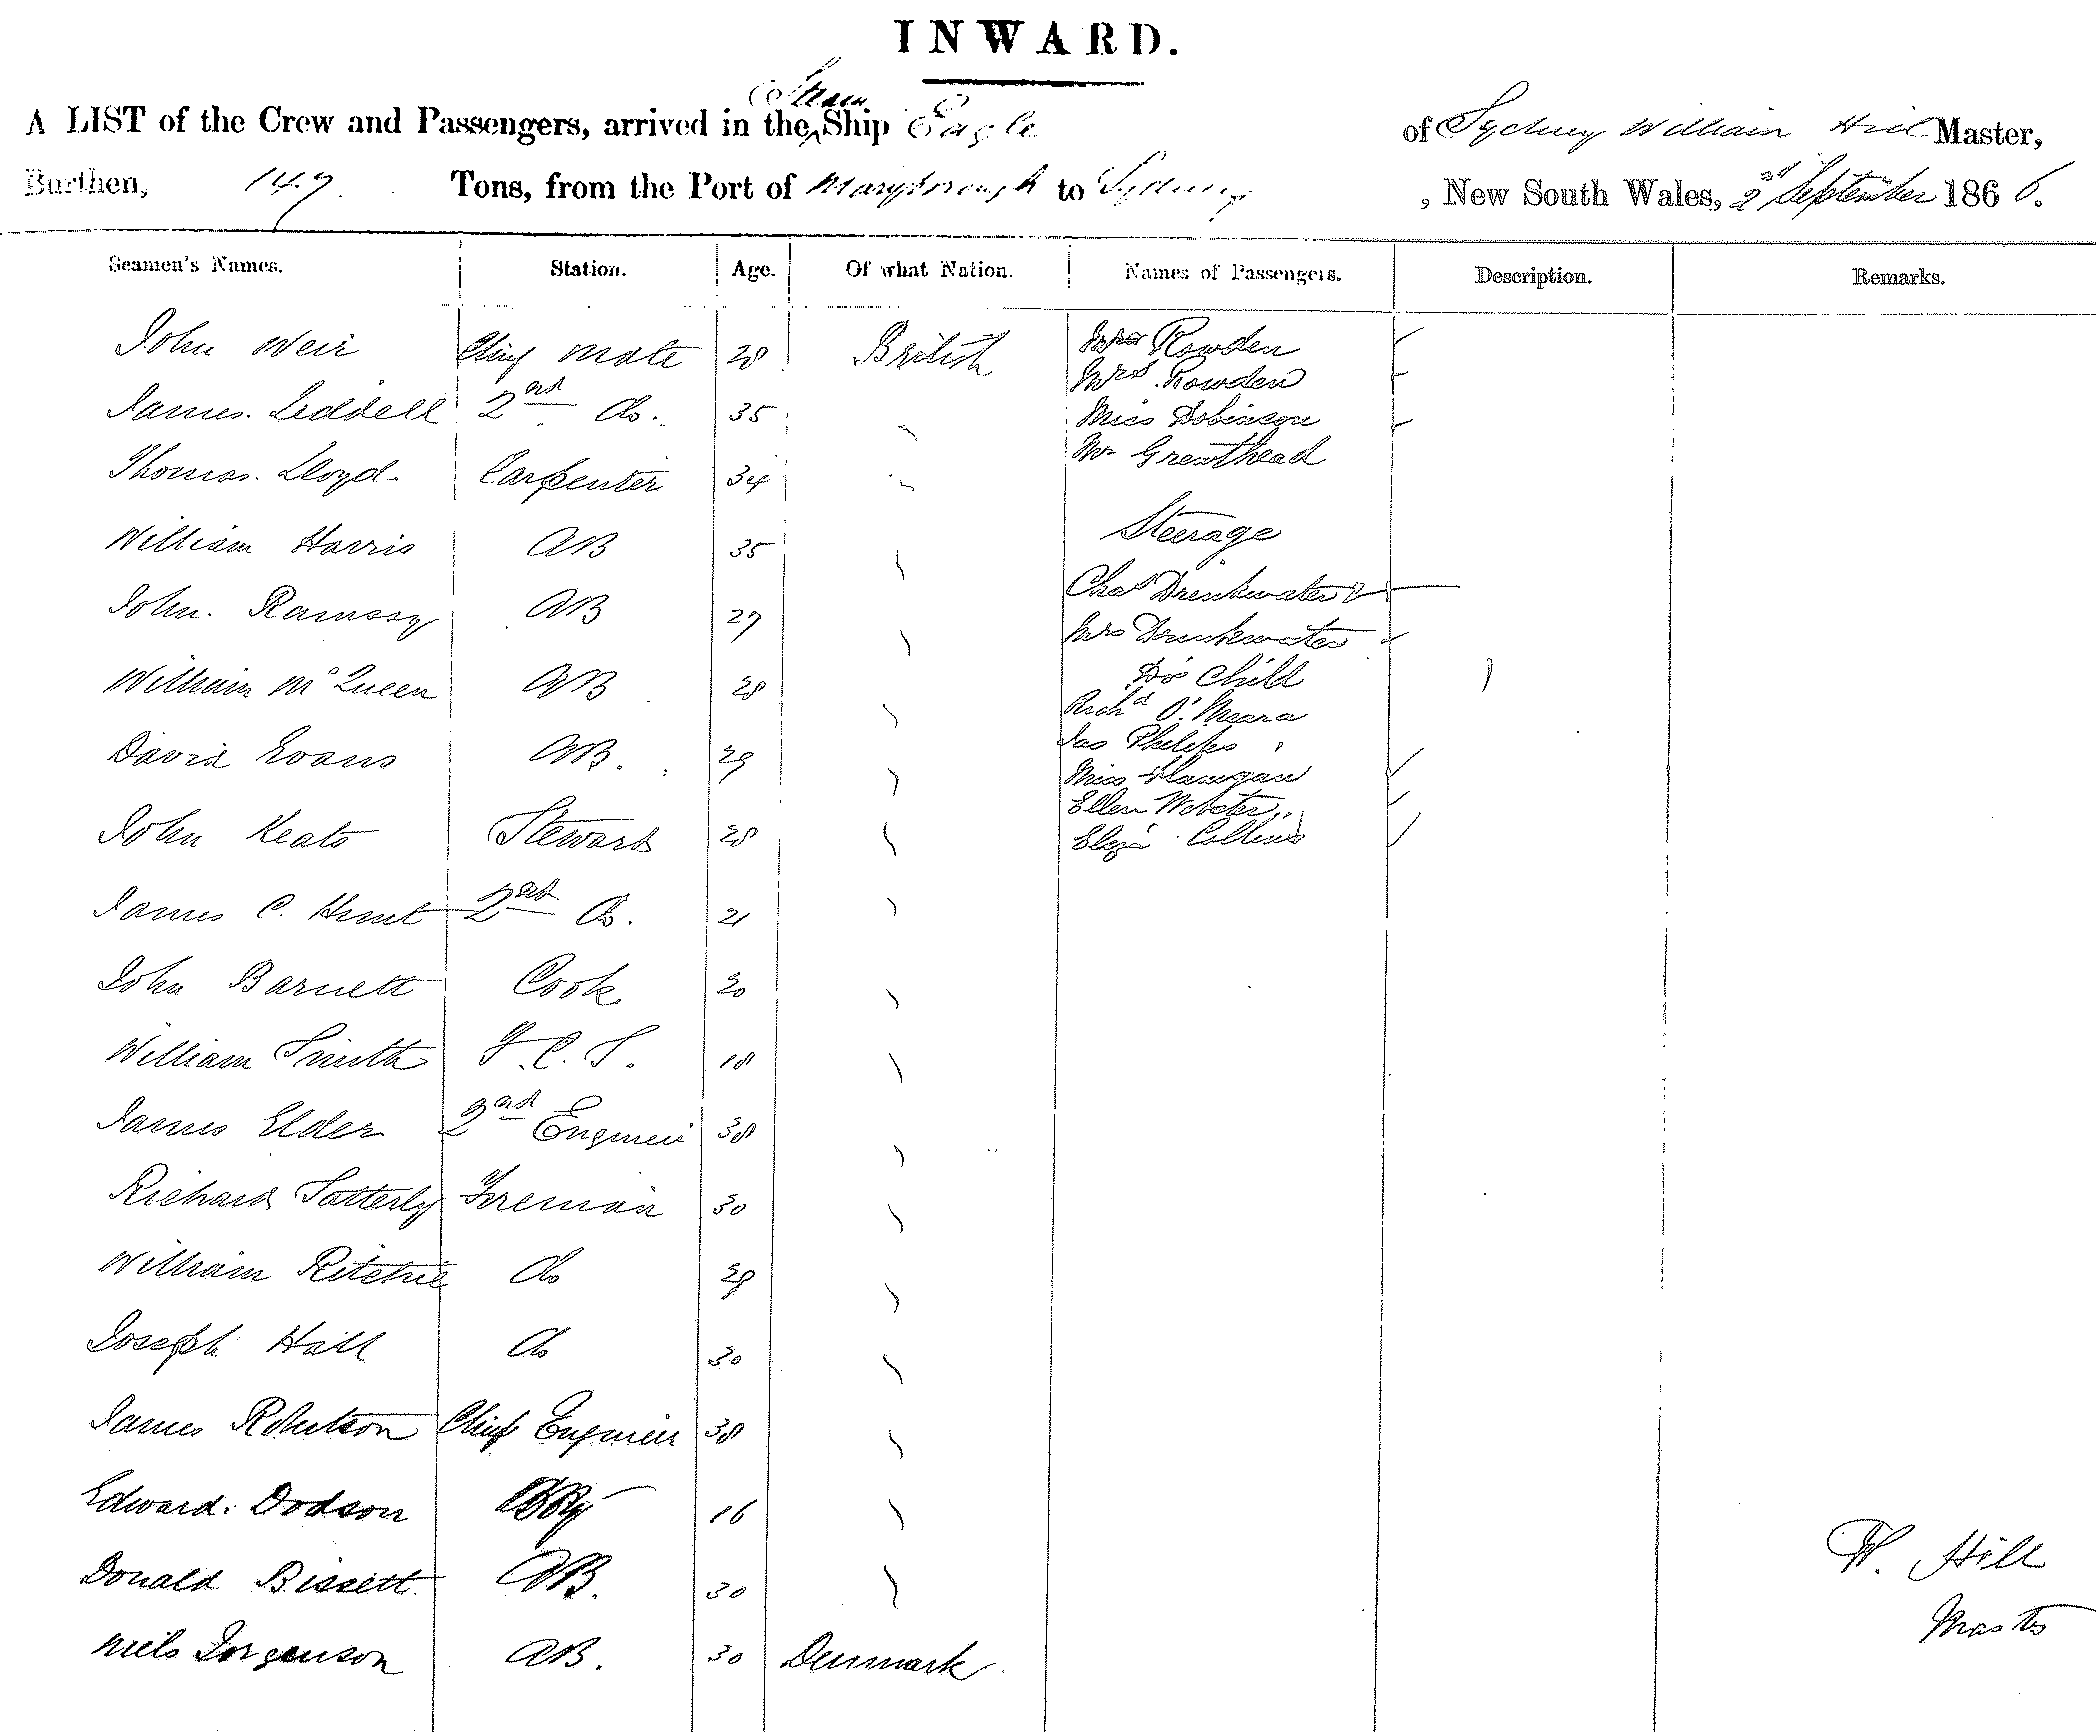 INWARD.
Steam
A LIST of the Crew and Passengers, arrived in the Ship Eagle of Sydney William Hill Master,
Burthen, 147 Tons, from the Port of Maryborough to Sydney , New South Wales, 2nd September 1866.
Seamen's Names. Station. Age. Of what Nation. Names of Passengers. Description. Remarks.
John Weir Chief Mate 28 British Rowden
Mrs Rowden
James Liddell 2nd Do. 35 Miss Dobinson
Thomas Lloyd 34 Carpenter Mr Greathead
William Harris AB 35 Steerage
John Ramsey AB 27 Chas Drinkwater
Mrs Drinkwater
William McQueen AB 28 Do Child
Richd O'Meara
David Evans AB 29 Jas Philips
Miss Flanigan
Ellen Webster
John Keats Steward 28 Eliza Collins
James C. Hunt 2nd Do. 21
John Barnett Cook 30
William Smith F.C.S. 18
James Elder 2nd Engineer 38
Richard Satterly Foreman 30
William Ritchie Do 29
Joseph Hall Do 30
James Robertson Chief Engineer 38
Edward Dodson Boy 16
Donald Bissett AB. 30 W. Hill
Master
Niels Jorgenson AB. 30 Denmark